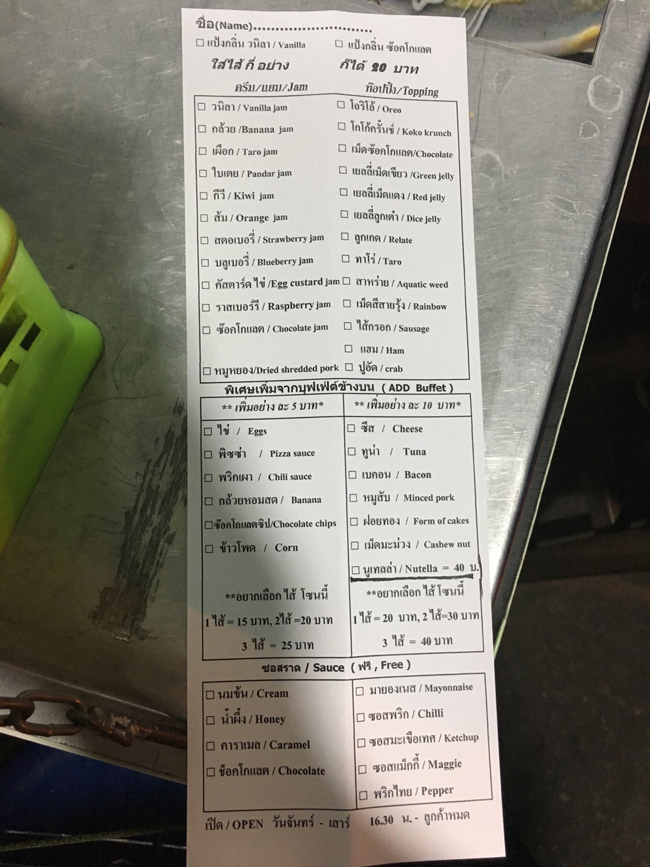 ชื่อ(Name)..............................
☐ แป้งกลิ่น วนิลา / Vanilla ☐ แป้งกลิ่น ช๊อคโกแลต
ใส่ไส้ กี่ อย่าง ก็ได้ 20 บาท
ครีม/แยม/Jam ท๊อปปิ้ง/Topping
☐ วนิลา / Vanilla jam ☐ โอริโอ้ / Oreo
☐ กล้วย /Banana jam ☐ โกโก้ครั้นช์ / Koko krunch
☐ เผือก / Taro jam ☐ เม็ดช๊อคโกแลต/Chocolate
☐ ใบเตย / Pandar jam ☐ เยลลี่เม็ดเขียว /Green jelly
☐ กีวี / Kiwi jam ☐ เยลลี่เม็ดแดง / Red jelly
☐ ส้ม / Orange jam ☐ เยลลี่ลูกเต๋า / Dice jelly
☐ สตอเบอรี่ / Strawberry jam ☐ ลูกเกด / Relate
☐ บลูเบอรี่ / Blueberry jam ☐ ทาโร่ / Taro
☐ คัสตาร์ด ไข่ /Egg custard jam ☐ สาหร่าย / Aquatic weed
☐ ราสเบอร์รี / Raspberry jam ☐ เม็ดสีสายรุ้ง / Rainbow
☐ ช๊อคโกแลต / Chocolate jam ☐ ไส้กรอก / Sausage
☐ แฮม / Ham
☐ หมูหยอง/Dried shredded pork ☐ ปูอัด / crab
พิเศษเพิ่มจากบุฟเฟ่ต์ข้างบน ( ADD Buffet )
** เพิ่มอย่าง ละ 5 บาท* ** เพิ่มอย่าง ละ 10 บาท*
☐ ไข่ / Eggs ☐ ชีส / Cheese
☐ พิซซ่า / Pizza sauce ☐ ทูน่า / Tuna
☐ พริกเผา / Chili sauce ☐ เบคอน / Bacon
☐ กล้วยหอมสด / Banana ☐ หมูสับ / Minced pork
☐ช๊อคโกแลตชิป/Chocolate chips ☐ ฝอยทอง / Form of cakes
☐ ข้าวโพด / Corn ☐ เม็ดมะม่วง / Cashew nut
☐ นูเทลล่า / Nutella = 40 บ.
**อยากเลือก ไส้ โซนนี้ **อยากเลือก ไส้ โซนนี้
1 ไส้ = 15 บาท, 2ไส้ =20 บาท 1 ไส้ = 20 บาท, 2 ไส้=30 บาท
3 ไส้ = 25 บาท 3 ไส้ = 40 บาท
ซอสราด / Sauce ( ฟรี , Free )
☐ นมข้น / Cream ☐ มายองเนส / Mayonnaise
☐ น้ำผึ้ง / Honey ☐ ซอสพริก / Chilli
☐ คาราเมล / Caramel ☐ ซอสมะเขือเทศ / Ketchup
☐ ช็อคโกแลต / Chocolate ☐ ซอสแม็กกี้ / Maggie
☐ พริกไทย / Pepper
เปิด / OPEN วันจันทร์ - เสาร์ 16.30 น. - ลูกค้าหมด